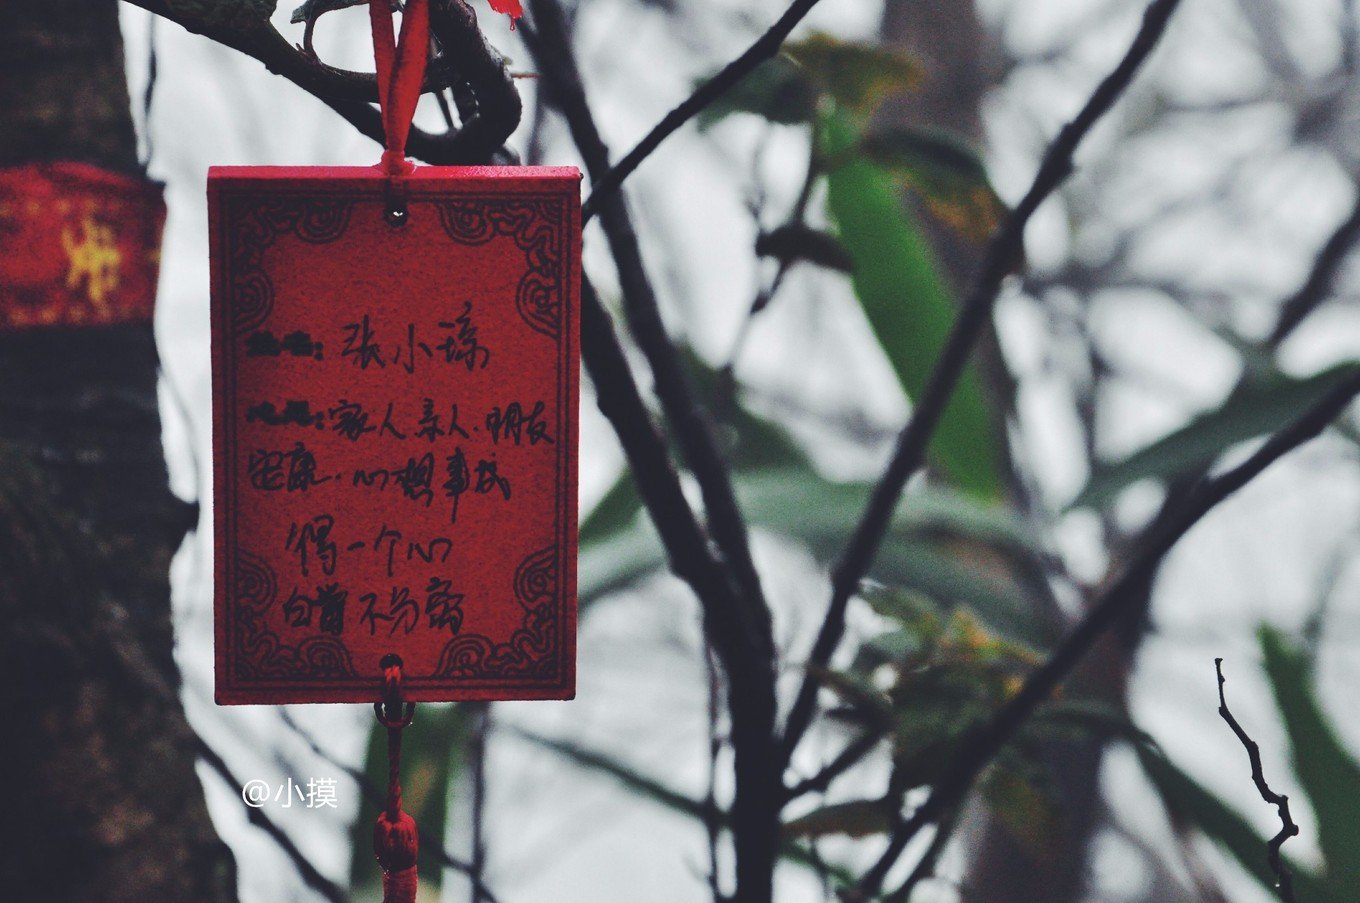 张小琼
家人亲人.朋友
安康.心想事成
得一个心
白首不分离
@小摸